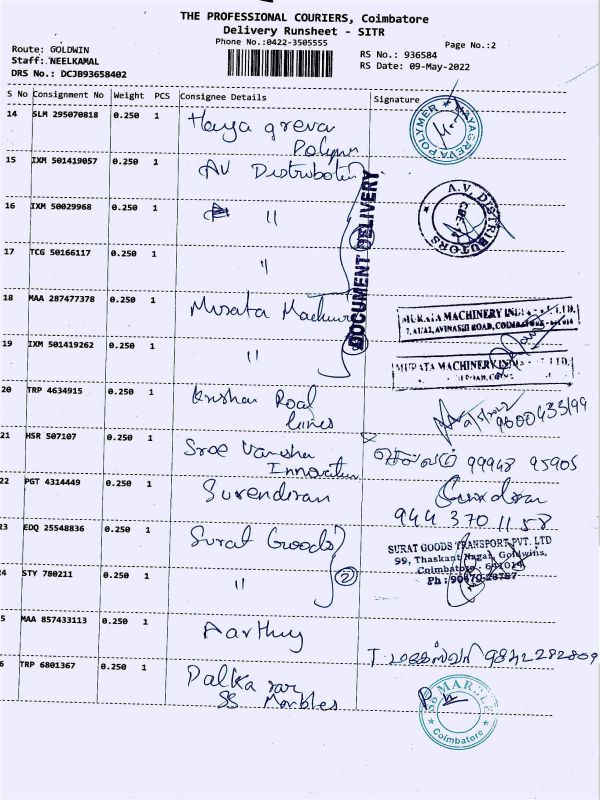 THE PROFESSIONAL COURIERS, Coimbatore
Delivery Runsheet - SITR
Phone No.:0422-3505555
Page No.:2
Route: GOLDWIN
Staff: NEELKAMAL
DRS No.: DCJB93658402
RS No.: 936584
RS Date: 09-May-2022
S No Consignment No Weight PCS Consignee Details Signature
14 SLM 295070818 0.250 1 Haya greva
Polymer
HAYAGREVA POLYMER
15 IXM 501419057 0.250 1 AV Distributors
A.V. DISTRIBUTORS
16 IXM 50029968 0.250 1 "
17 TCG 50166117 0.250 1 "
DOCUMENT DELIVERY
18 MAA 287477378 0.250 1 Murata Machinery
MURATA MACHINERY INDIA LTD.
AVINASHI ROAD, COIMBATORE
19 IXM 501419262 0.250 1 "
MURATA MACHINERY INDIA LTD.
20 TRP 4634915 0.250 1 Krishna Road
Lines
21 HSR 507107 0.250 1 Sree Vansha
Innovation
செல்வம் 99948 95905
22 PGT 4314449 0.250 1 Surendiran
944 370 1158
23 EDQ 25548836 0.250 1 Surat Goods
SURAT GOODS TRANSPORT PVT. LTD
99, Thaskant Nagar, Goldwins,
Coimbatore - 641014
24 STY 780211 0.250 1 " 2
5 MAA 857433113 0.250 1 Aarthy
9842282809
6 TRP 6801367 0.250 1
SS Marbles
SS MARBLE
Coimbatore